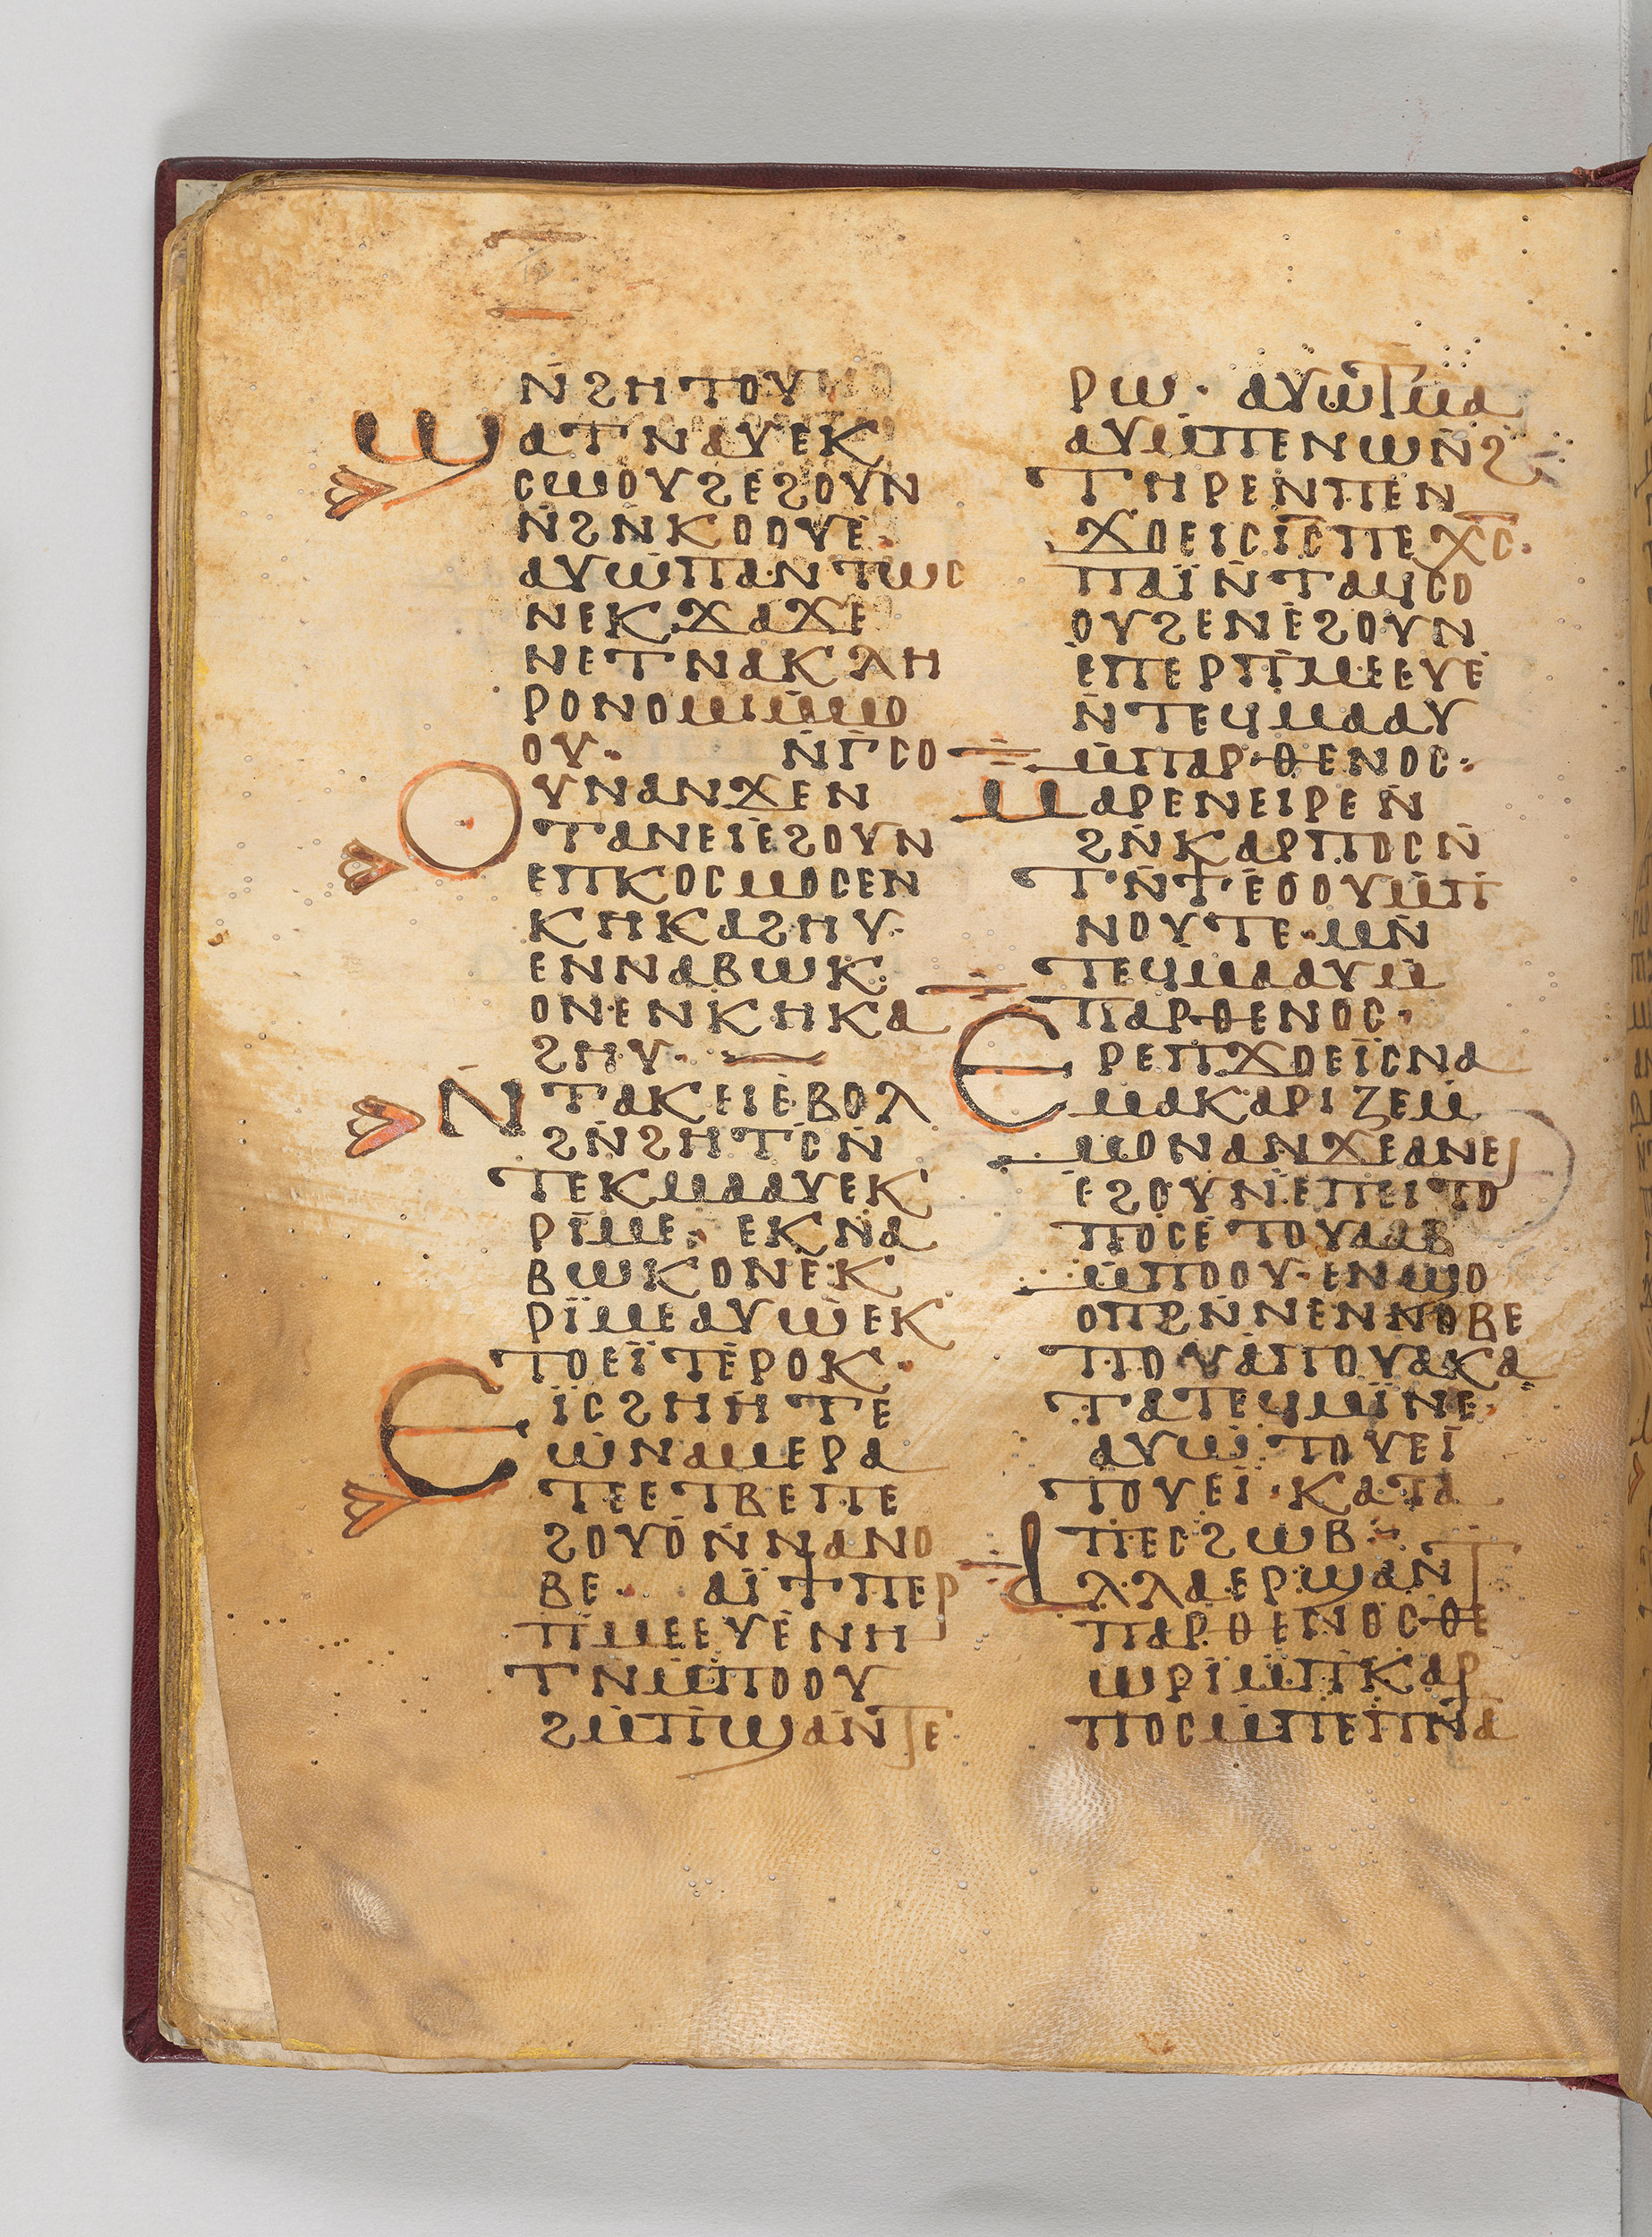 ⲛ̇ϩⲏⲧⲟⲩ
ϣⲁⲧⲛⲁⲩⲉⲕ
ⲥⲱⲟⲩϩⲉϩⲟⲩⲛ
ⲛ̇ϩⲛ̇ⲕⲟⲟⲩⲉ·
ⲁⲩⲱⲡⲁⲛⲧⲱⲥ
ⲛⲉⲕϫⲁϫⲉ
ⲛⲉⲧⲛⲁⲕⲗⲏ
ⲣⲟⲛⲟⲙⲓⲙ̇ⲙⲟ
ⲟⲩ· ⲛ̇ⲅ̇ⲥⲟ
ⲟⲩⲛⲁⲛϫⲉⲛ
ⲧⲁⲛⲉⲓⲉ̇ϩⲟⲩⲛ
ⲉⲡⲕⲟⲥⲙⲟⲥⲉⲛ
ⲕⲏⲕⲁϩⲏⲩ·
ⲉⲛⲛⲁⲃⲱⲕ
ⲟⲛⲉⲛⲕⲏⲕⲁ
ϩⲏⲩ·
ⲛ̇ⲧⲁⲕⲉⲓⲉ̇ⲃⲟⲗ
ϩⲛ̇ϩⲏⲧⲥ̇ⲛ̇
ⲧⲉⲕⲙⲁⲁⲩⲉⲕ
ⲣⲓⲙⲉ· ⲉⲕⲛⲁ
ⲃⲱⲕⲟⲛⲉ̇ⲕ
ⲣⲓ̈ⲙⲉⲁⲩⲱ̇ⲉⲕ
ⲧⲟⲉⲓ̈ⲧⲉ̇ⲣⲟⲕ·
ⲉⲓ̈ⲥϩⲏⲏⲧⲉ
ⲱ̇ⲛⲁⲙⲉⲣⲁ
ⲧⲉⲉⲧⲃⲉⲡⲉ
ϩⲟⲩⲟ̇ⲛ̇ⲛⲁⲛⲟ
ⲃⲉ· ⲁⲓ̈ϯⲡⲉⲣ
ⲡⲙⲉⲉⲩⲉ̇ⲛⲏ
ⲧⲛⲙ̇ⲡⲟⲟⲩ
ϩⲙ̇ⲡϣⲁⲛⲧⲉ
ⲣⲱ· ⲁⲩⲱϯⲙⲁ
ⲁⲩⲙ̇ⲡⲉⲛⲱⲛ̇ϩ
ⲧⲏⲣⲉⲛⲡⲉⲛ
ϫⲟⲉⲓⲥⲓ̅ⲥ̅ⲡⲉⲭ̅ⲥ̅·
ⲡⲁⲓ̈ⲛ̇ⲧⲁϥⲥⲟ
ⲟⲩϩⲉⲛⲉ̇ϩⲟⲩⲛ
ⲉ̇ⲡⲉⲣⲡ̇ⲙⲉⲉⲩⲉ̇
ⲛ̇ⲧⲉϥⲙⲁⲁⲩ
ⲙ̇ⲡⲁⲣⲑⲉⲛⲟⲥ·
ⲙⲁⲣⲉⲛⲉⲓⲣⲉⲛ̇
ϩⲛ̇ⲕⲁⲣⲡⲟⲥⲛ̇
ⲧⲛ̇ϯⲉ̇ⲟⲟⲩⲙ̇ⲡ
ⲛⲟⲩⲧⲉ·ⲙⲛ̇
ⲧⲉϥⲙⲁⲁⲩⲙ̇
ⲡⲁⲣⲑⲉⲛⲟⲥ·
ⲉⲣⲉⲡϫⲟⲉⲓ̈ⲥⲛⲁ
ⲙⲁⲕⲁⲣⲓⲍⲉⲙ̇
ⲙⲟⲛⲁⲛϫⲉⲁⲛⲉⲓ
ⲉ̇ϩⲟⲩⲛⲉ̇ⲡⲉⲓⲧⲟ
ⲡⲟⲥⲉⲧⲟⲩⲁⲁⲃ
ⲙ̇ⲡⲟⲟⲩ·ⲉⲛϣⲟ
ⲟⲡϩⲛ̇ⲛⲉⲛⲛⲟⲃⲉ
ⲡⲟⲩⲁ̇ⲡⲟⲩⲁⲕⲁ
ⲧⲁⲧⲉϥⲙⲓ̈ⲛⲉ·
ⲁⲩⲱ̇ⲧⲟⲩⲉⲓ̇
ⲧⲟⲩⲉⲓ̈·ⲕⲁⲧⲁ
ⲡⲉⲥϩⲱⲃ·
ⲁⲗⲗⲁⲉⲣϣⲁⲛⲧ
ⲡⲁⲣⲑⲉⲛⲟⲥⲑⲉ
ⲱⲣⲓ̈ⲙ̇ⲡⲕⲁⲣ
ⲡⲟⲥⲙ̇ⲡⲉⲡ̅ⲛ̅ⲁ̅